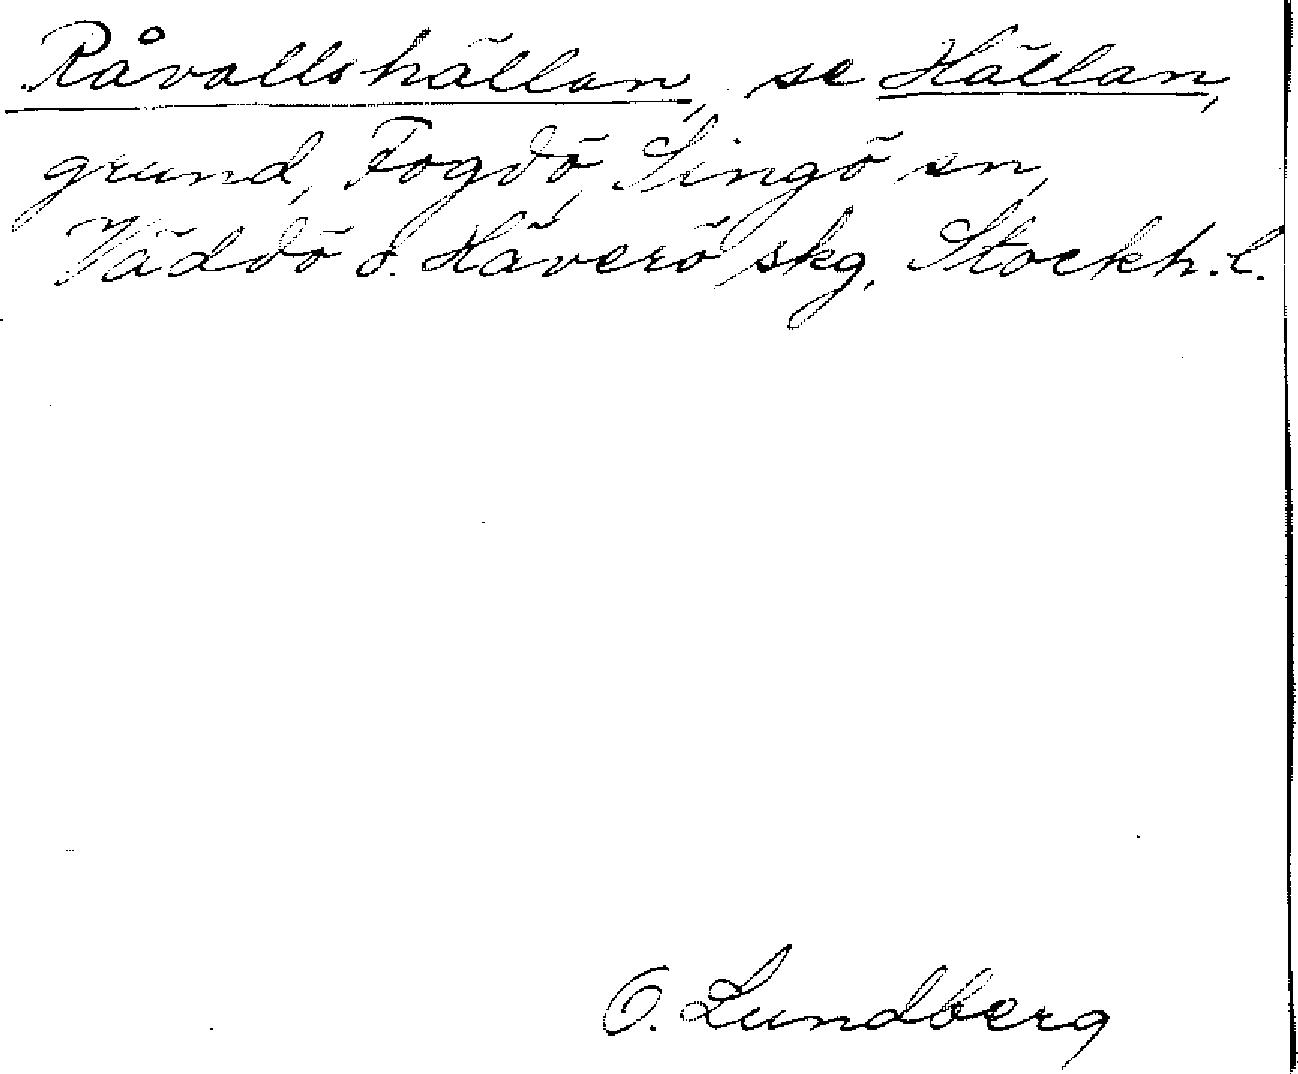 Råvallshällan, se Hällan,
grund, Fogdö, Singö sn,
Väddö o. Häverö skg, Stockh. l.
O. Lundberg